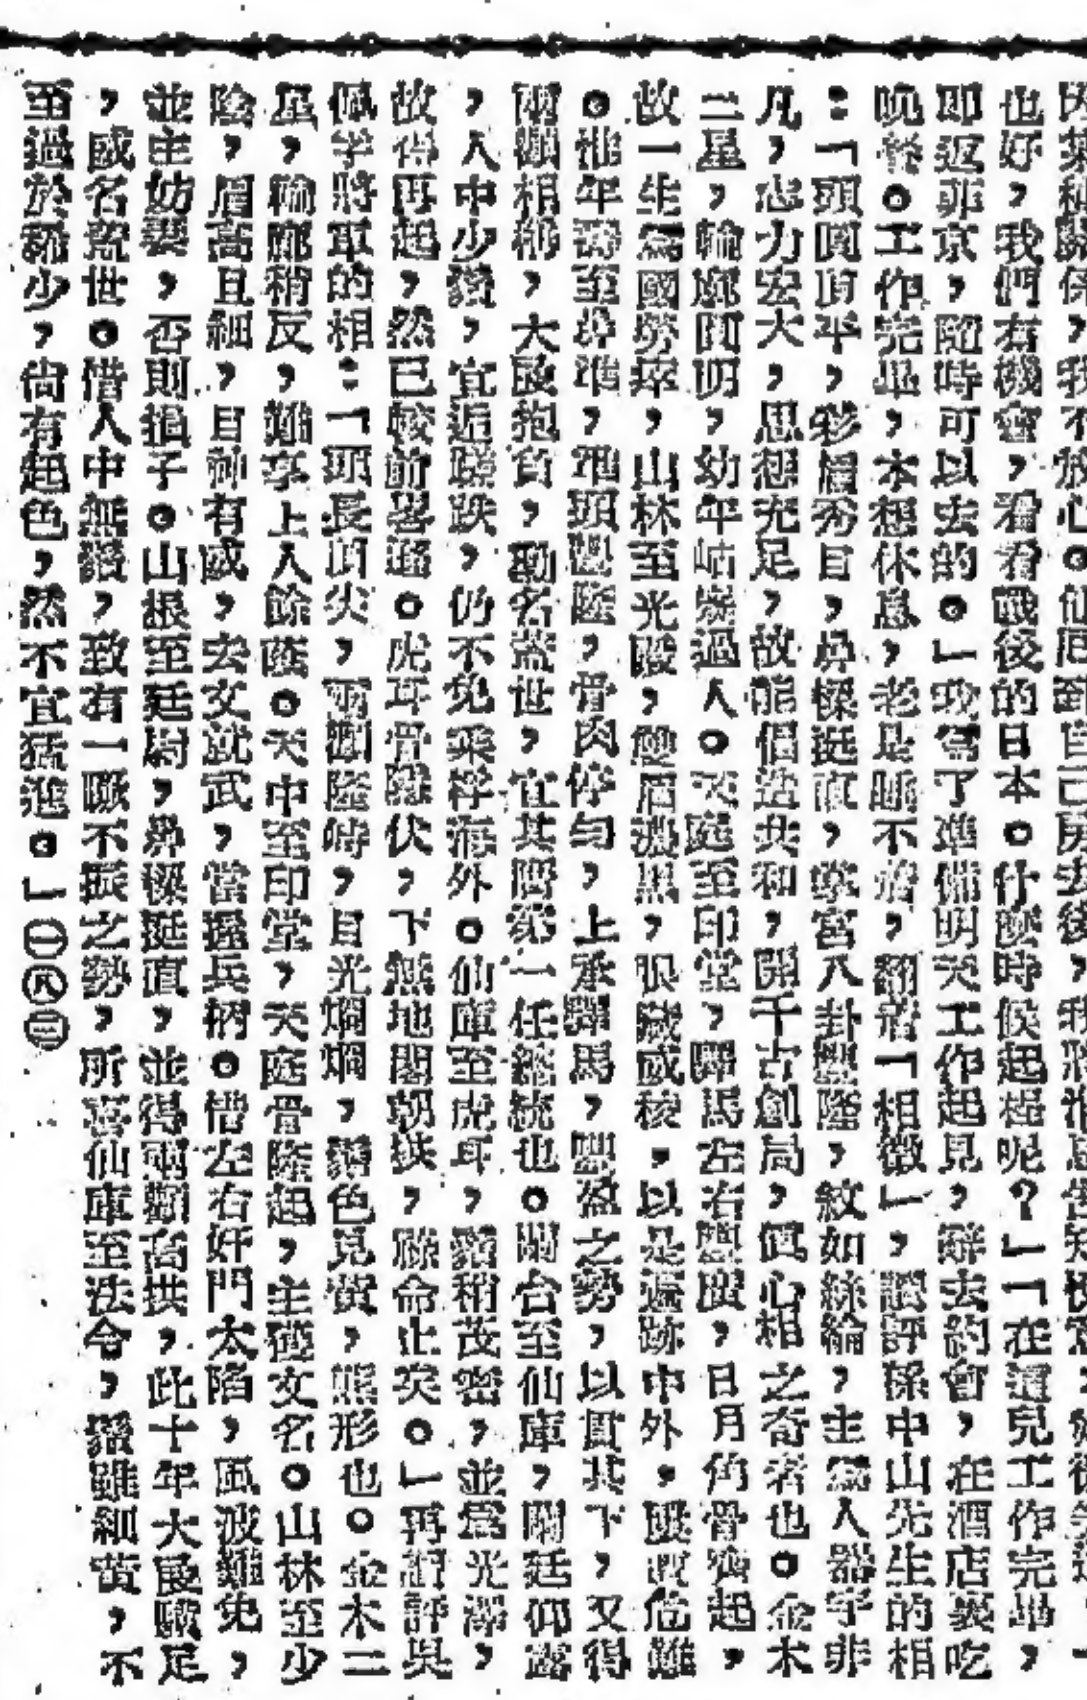 也好，我們有機會，看看戰後的日本。什麼時候起程呢？」「在這兒工作完畢，
即返菲京，隨時可以去的。」我寫了準備明天工作起見，辭去約會，在酒店裏吃
晚餐。工作完畢，本想休息，老是睡不着，翻着「相微」，說評孫中山先生的相
：「頭圓頂平，彩眉秀目，鼻樑挺直，掌宮八卦豐隆，紋如絲綸，主為人器宇非
凡，志力宏大，思想充足，故能倡造共和，開千古創局，佩心相之奇者也。金木
二星，輪廓圓明，幼年岐嶷過人。天庭至印堂，驛馬左右豐廣，日月角骨齊起，
故一生為國勞瘁，山林至光殿，雙眉濃黑，眼藏威稜，以是遍跡中外，履歷危難
。惟年壽至鼻準，準頭豐隆，骨肉停勻，上承驛馬，豐盈之勢，以貫其下，又得
兩顴相稱，大展抱負，勳名蓋世，宜其膺第一任總統也。蘭台至仙庫，蘭廷仰露
，人中少鬚，宜近蹉跌，仍不免乘桴海外。仙庫至虎耳，鬚稍茂密，並為光澤，
故得再起，然已較前畧遜。虎耳骨雖伏，下無地閣朝拱，祿命止矣。」再謝評吳
佩孚將軍的相：「頭長頂尖，兩顴隆峙，目光爛爛，鬚色見黃，熊形也。金木二
星，輪廓稍反，難享上人餘蔭。天中至印堂，天庭骨隆起，主獲文名。山林至少
陰，眉高且細，目神有威，去文就武，當握兵柄。惜左右奸門太陷，風波難免，
並主妨妻，否則損子。山根至廷尉，鼻樑挺直，並得兩顴高拱，此十年大展驥足
，威名震世。惜人中無鬚，致有一蹶不振之勢，所喜仙庫至法令，鬚雖細黃，不
至過於稀少，尚有起色，然不宜猛進。」㊀㊇㊂